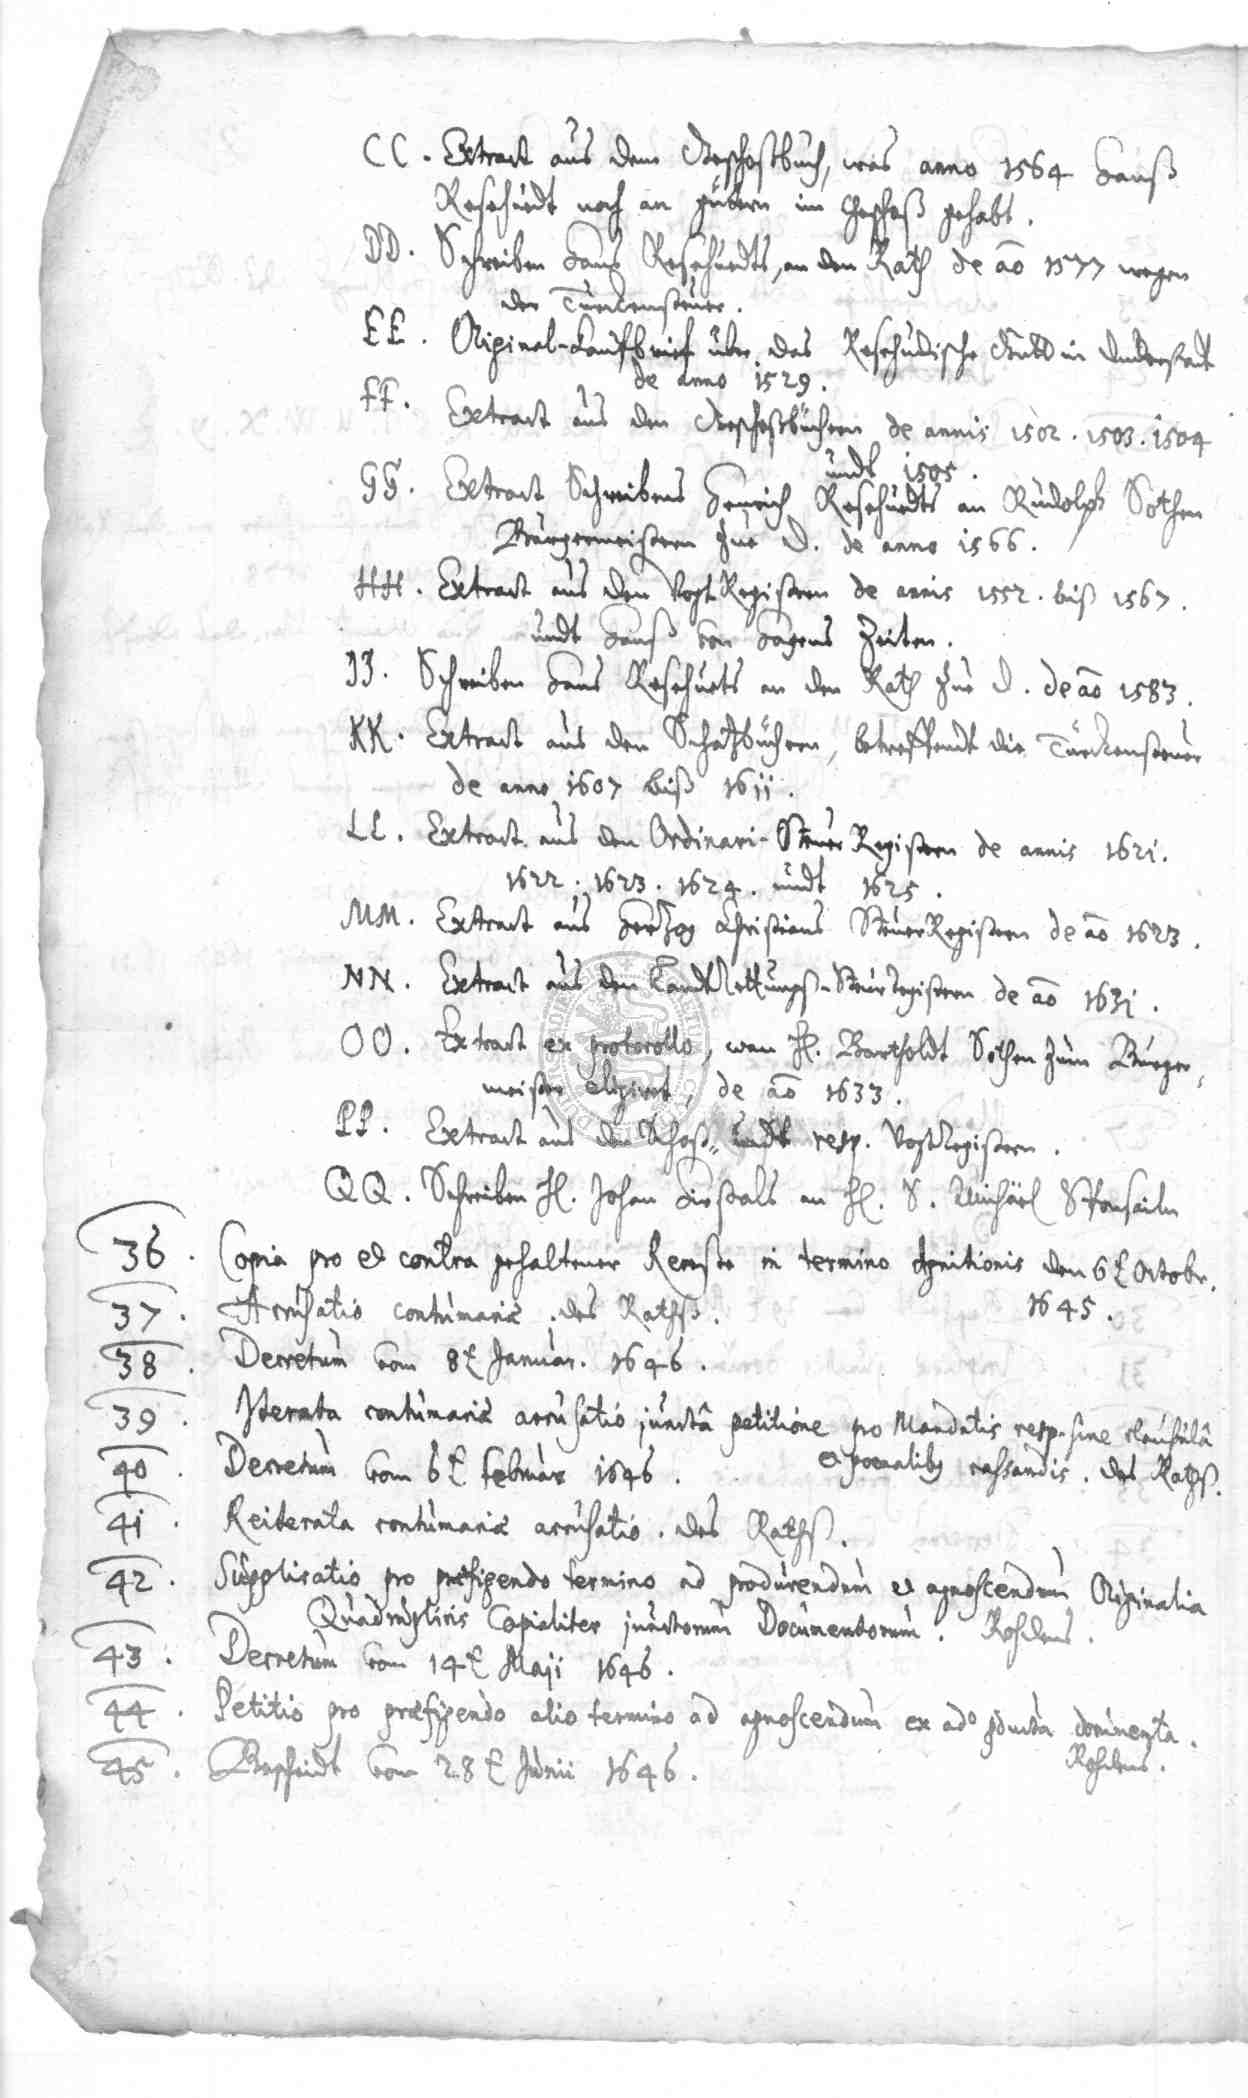 CC. Extract aus dem Geschoßbuch, was anno 1564 Hanß
Rosehuedt noch an gütern im Geschoß gehabt.
DD. Schreiben Hans Rosehuedts, an den Rath de aõ 1577 wegen
der Türckensteuer.
EE. Original-Kaufbrief über das Rosehudische Guth in Duderstadt
de anno 1529.
FF. Extract aus den Geschoßbüchern de annis 1502. 1503. 1504
undt 1505.
GG. Extract Schreibens Henrich Rosehuedts an Rudolph Sothen
Bürgermeistern zue D. de anno 1566.
HH. Extract aus den Vogt Registern de annis 1552. biß 1567.
undt Hanß von Hagens Zeiten.
JJ. Schreiben Hans Rosehuets an den Rath zue D. de aõ 1583.
KK. Extract aus den Schatzbüchern, betreffendt die Türckensteuer
de anno 1607 biß 1611.
LL. Extract aus den Ordinari-Steuer Registern de annis 1621.
1622. 1623. 1624. undt 1625.
MM. Extract aus Hertzog Christians SteuerRegistern de aõ 1623.
NN. Extract aus den LandtRettungß-Steur registern de aõ 1631.
OO. Extract ex protocollo, wan H. Bartholdt Sothen zum Bürger,
meister eligiret, de aõ 1633.
PP. Extract aus den Schoß- undt resp. Vogt Registern.
QQ. Schreiben H. Johan an H. S. Michäel
36. Copia pro et contra gehaltener Recesse in termino den 6t Octobr.
1645.
37. Accusatio contumaciæ. des Rathß.
38. Decretum vom 8t Januar. 1646.
39. Iterata contumaciæ accusatio junctâ petitione pro Mandatis resp. sine clausulâ
et poenalibꝫ cassandis. des Rathß.
40. Decretum vom 6t Februar 1646.
41. Reiterata contumaciæ accusatio. des Rathß.
42. Supplicatio pro præfigendo termino ad producendum et agnoscendum Originalia
Quadruplicis Copialiter junctorum Documentorum. Rosehens.
43. Decretum vom 14t Maji 1646.
44. Petitio pro præfigendo alio termino ad agnoscendum ex adõ documenta.
Rosehens.
45. Bescheidt vom 28t Junii 1646.